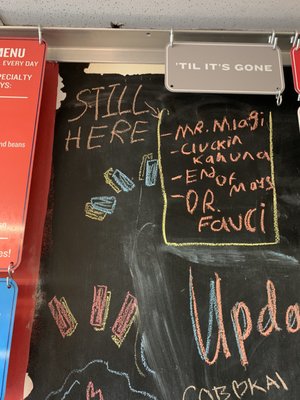 MENU
EVERY DAY
SPECIALTY
and beans
'TIL IT'S GONE
STILL
HERE
- MR. MIAGI
- CLUCKIN
KAHUNA
- END OF
MAYS
- DR.
FAUCI
Upda
COBOKAI